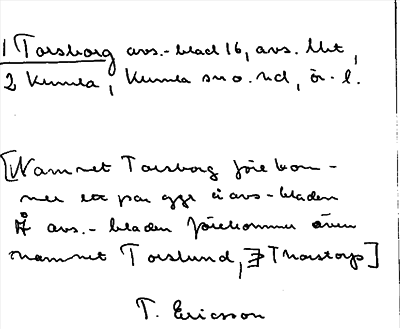 1 Torsborg avs.-blad 16, avs. Utt,
2 Kumla, Kumla sn o. hd, ör. l.
[Namnet Torsborg förekom-
mer ett par ggr å avs-bladen
Å avs.-bladen förekommer även
namnet Torslund, Thorstorp]
T. Ericsson